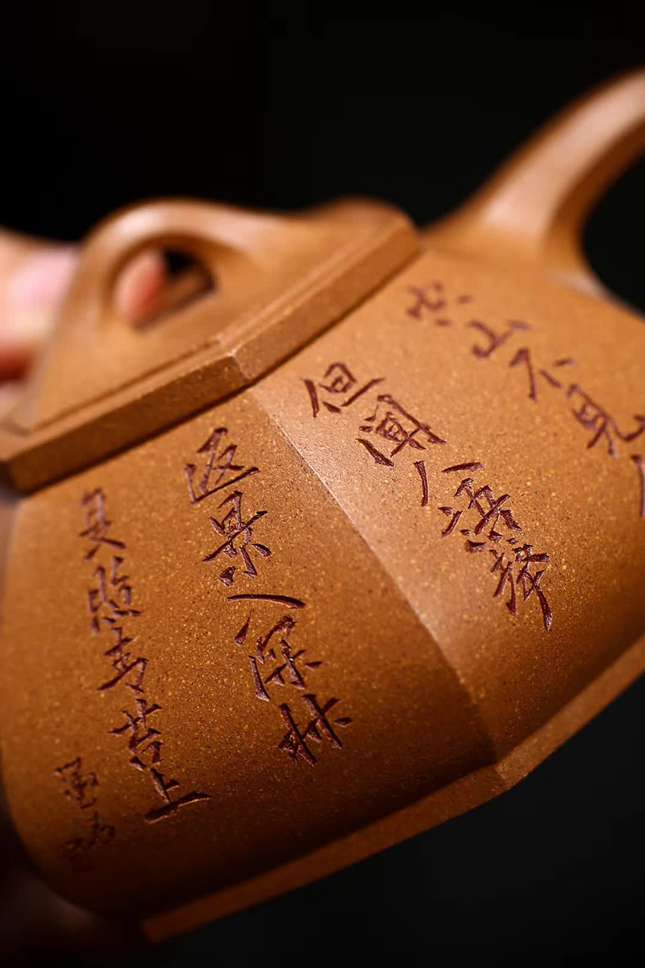 空山不見人
但聞人語響
返景入深林
复照青苔上